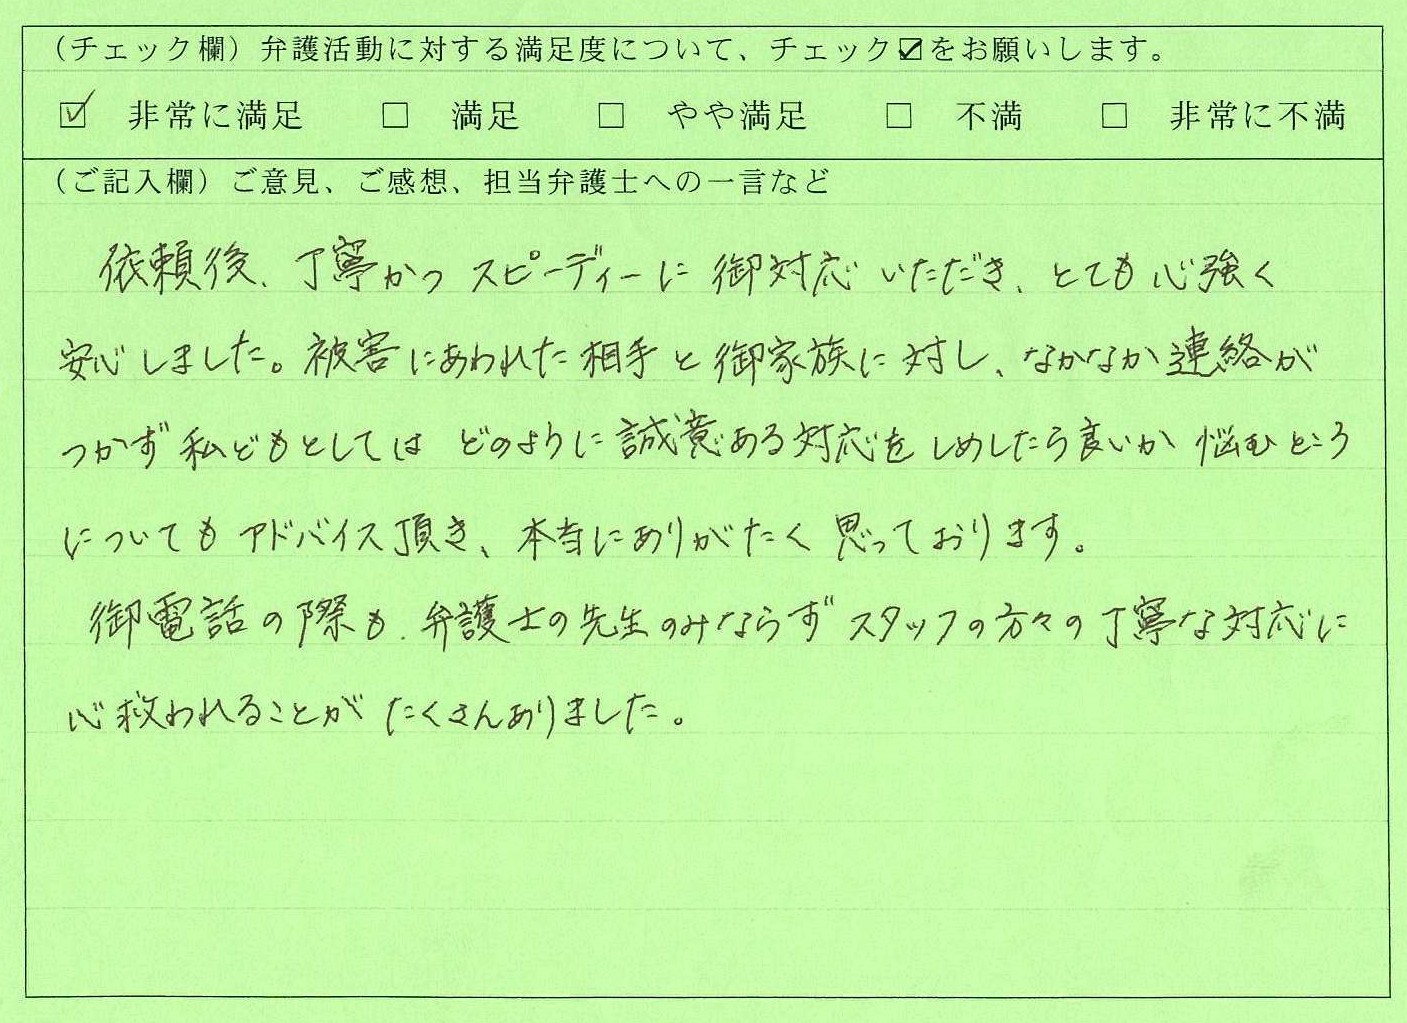 (チェック欄)弁護活動に対する満足度について、チェック☑をお願いします。
☑ 非常に満足 □ 満足 □ やや満足 □ 不満 □ 非常に不満
(ご記入欄)ご意見、ご感想、担当弁護士への一言など
依頼後、丁寧かつスピーディーに御対応いただき、とても心強く
安心しました。被害にあわれた相手と御家族に対し、なかなか連絡が
つかず私どもとしてはどのように誠意ある対応をしめしたら良いか悩むところ
についてもアドバイス頂き、本当にありがたく思っております。
御電話の際も、弁護士の先生のみならずスタッフの方々の丁寧な対応に
心救われることがたくさんありました。